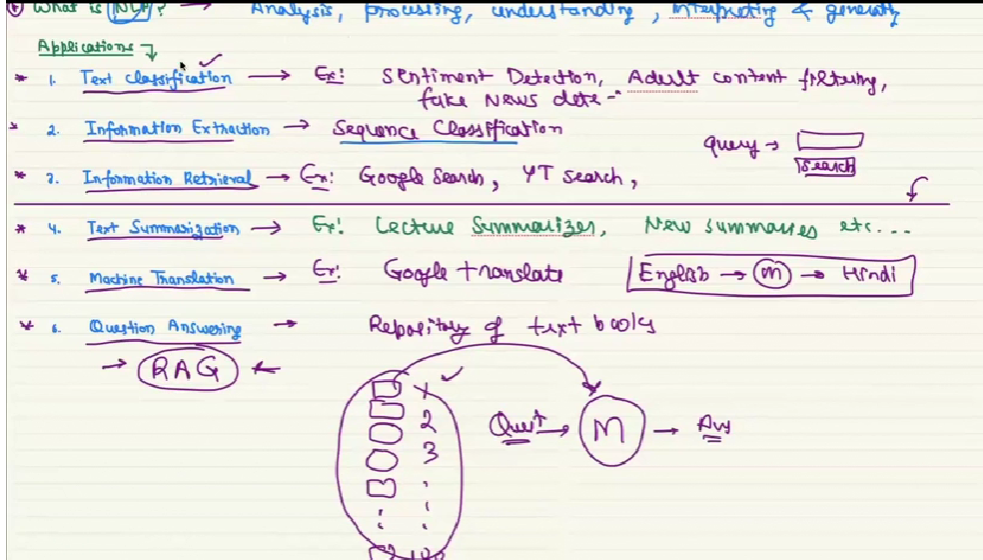 What is NLP? → Analysis, processing, understanding, interpreting & generating
Applications
* 1. Text Classification → Ex: Sentiment Detection, Adult content filtering,
fake News dete-
* 2. Information Extraction → Sequence Classification
query →
Search
* 3. Information Retrieval → Ex: Google Search, YT search,
* 4. Text Summarization → Ex: Lecture Summarizer, New summaries etc...
* 5. Machine Translation → Ex: Google translate English → M → Hindi
* 6. Question Answering → Repository of text books
→ RAG ←
1
2
3
M →